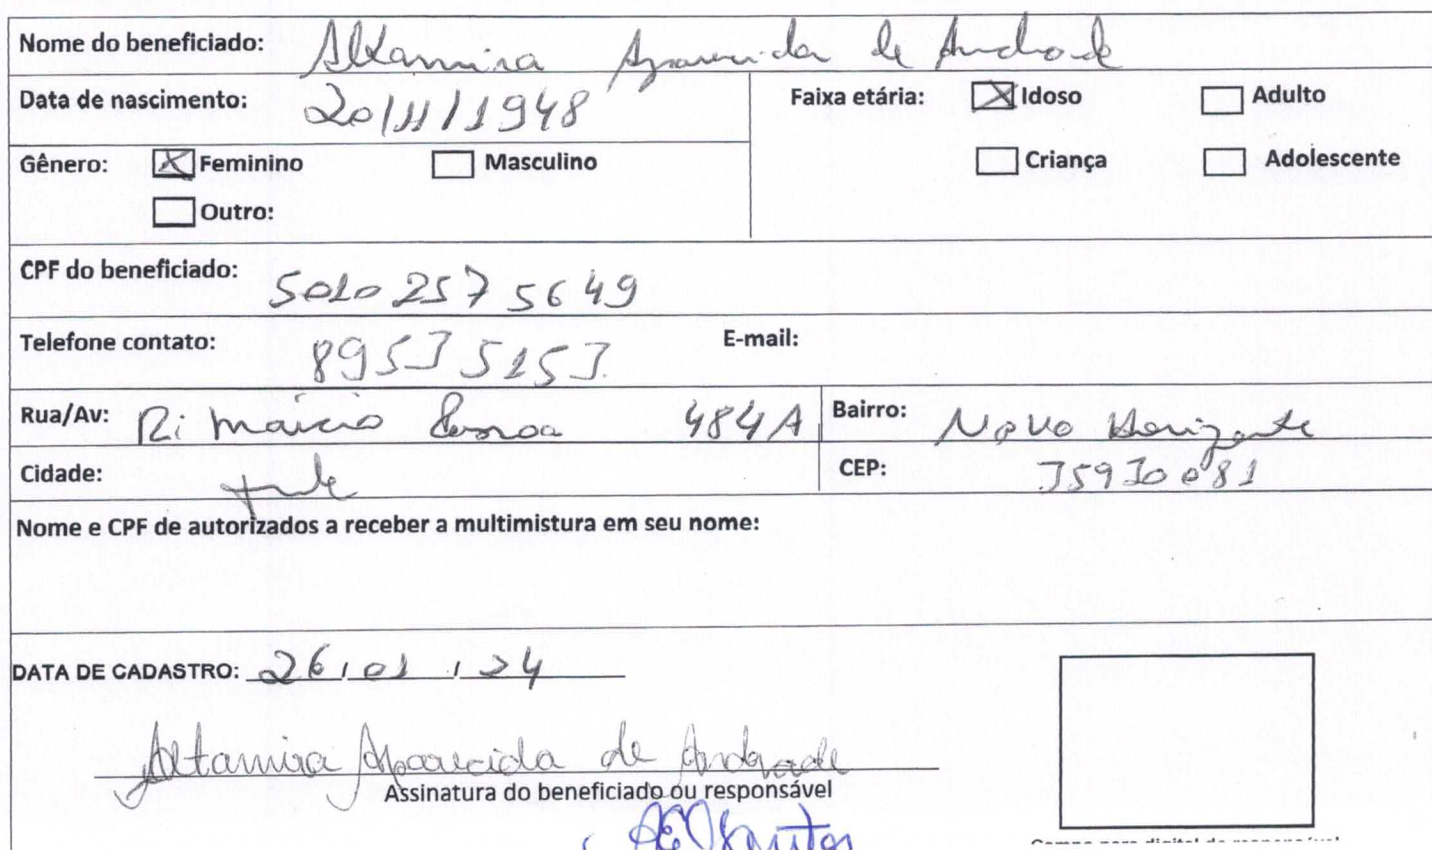 Nome do beneficiado: Altamira Aparecida de Andrade
Data de nascimento: 20/11/1948
Faixa etária: Idoso Adulto
Gênero: Feminino Masculino
Criança Adolescente
Outro:
CPF do beneficiado: 50102575649
Telefone contato: 89535153 E-mail:
Rua/Av: Ri Márcio 484A Bairro: Novo Horizonte
Cidade: CEP: 35930081
Nome e CPF de autorizados a receber a multimistura em seu nome:
DATA DE CADASTRO: 26/01/24
Altamira Aparecida de Andrade
Assinatura do beneficiado ou responsável